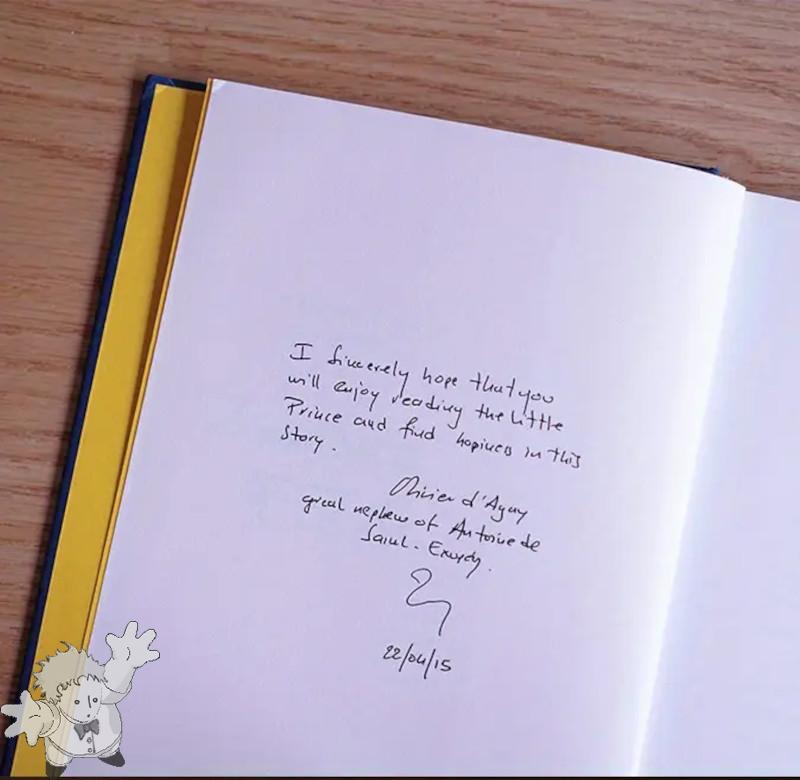 I sincerely hope that you
will enjoy reading the little
Prince and find hopiness in this
story.
Olivier d'Agay
great nephew of Antoine de
Saint-Exupéry.
22/04/15